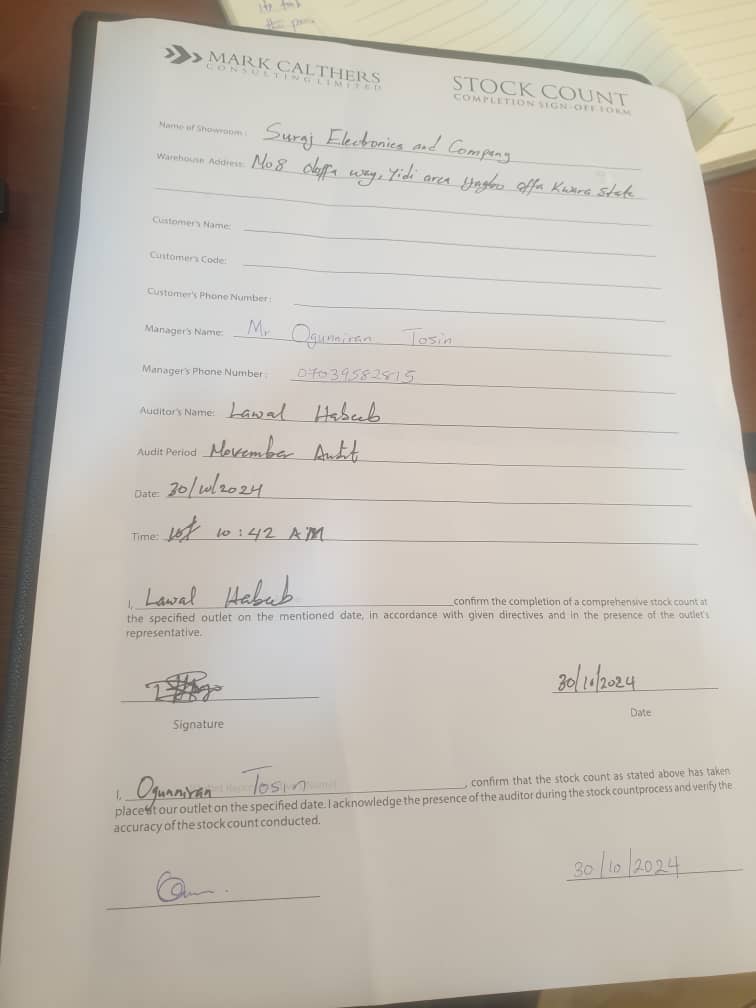 MARK CALTHERS
CONSULTING LIMITED
STOCK COUNT
COMPLETION SIGN-OFF FORM
Name of Showroom: Suraj Electronics and Company
Warehouse Address: No 8 way, Yidi area offa Kwara State
Customer's Name:
Customer's Code:
Customer's Phone Number:
Manager's Name: Mr Ogunniran Tosin
Manager's Phone Number: 07039582815
Auditor's Name: Lawal Habeeb
Audit Period November Audit
Date: 30/10/2024
Time: 10:42 AM
I, Lawal Habeeb confirm the completion of a comprehensive stock count at
the specified outlet on the mentioned date, in accordance with given directives and in the presence of the outlet's
representative.
30/10/2024
Signature
Date
I, Ogunniran Tosin, confirm that the stock count as stated above has taken
place at our outlet on the specified date. I acknowledge the presence of the auditor during the stock countprocess and verify the
accuracy of the stock count conducted.
30/10/2024